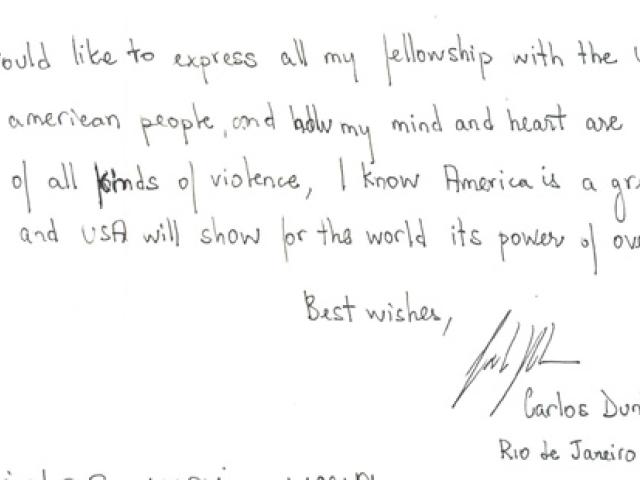 ould like to express all my fellowship with the
american people, and how my mind and heart are
of all kinds of violence, I know America is a gr
and USA will show for the world its power of ov
Best wishes,
Carlos Dun
Rio de Janeiro